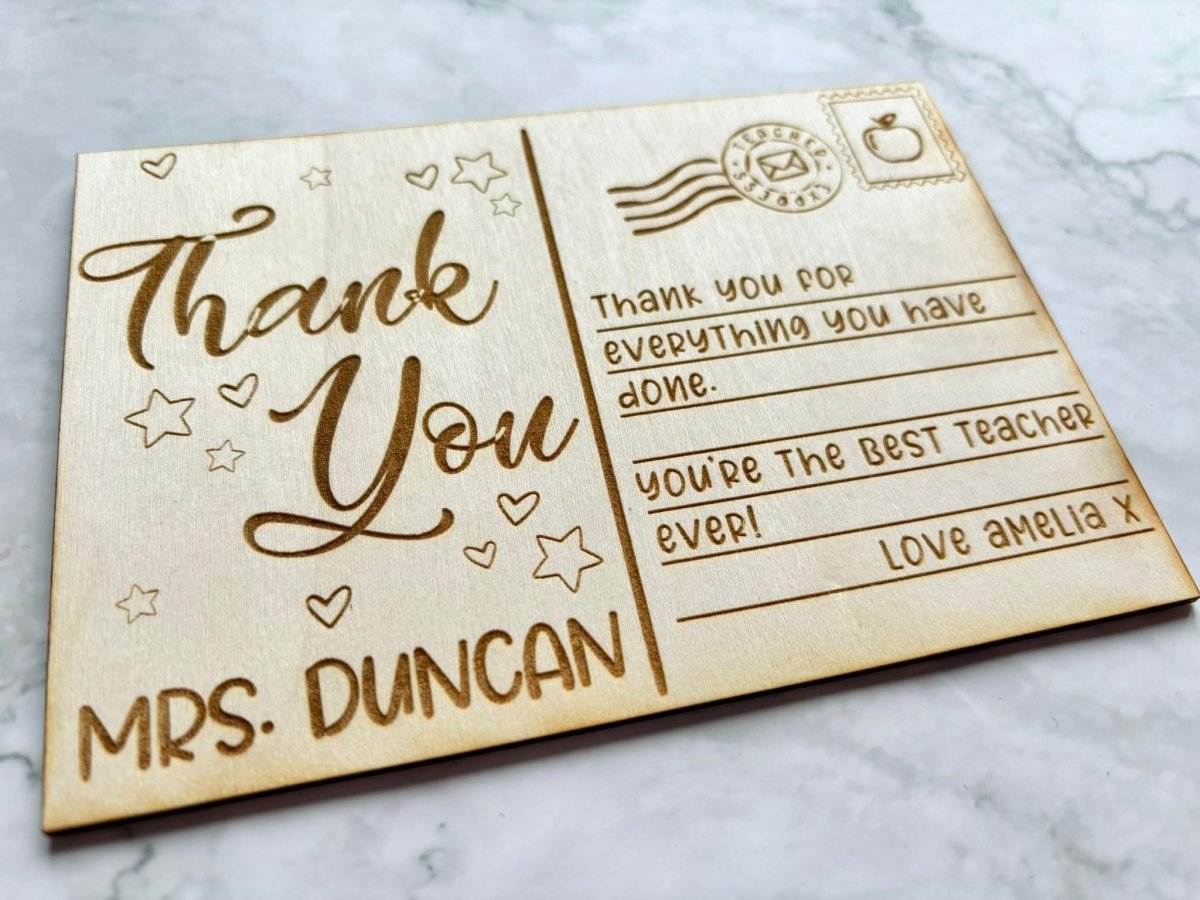 Thank
You
MRS. DUNCAN
TEACHER
EXPRESS
Thank you for
everything you have
done.
you're the best teacher
ever!
Love Amelia x